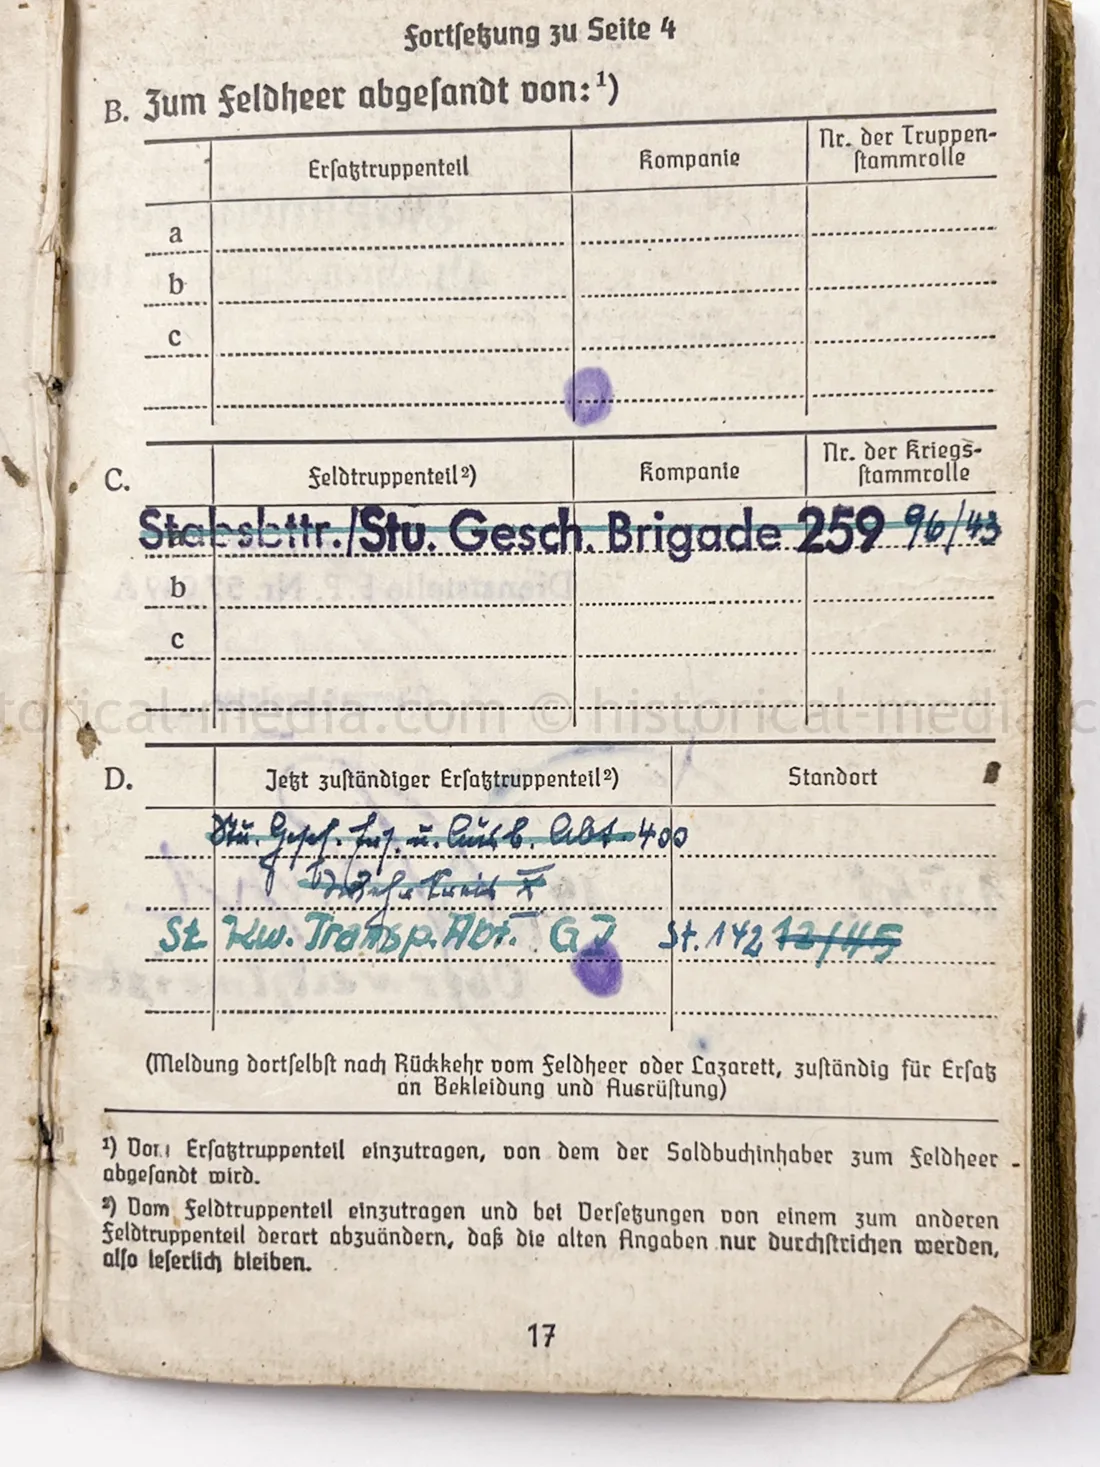 Fortsetzung zu Seite 4
B. Zum Feldheer abgesandt von:¹)
Ersatztruppenteil
Kompanie
Nr. der Truppen-
stammrolle
a
b
c
C.
Feldtruppenteil²)
Kompanie
Nr. der Kriegs-
stammrolle
Stabsbttr./Stu. Gesch. Brigade 259 96/43
b
c
historical-media.com © historical-media.com
D.
Jetzt zuständiger Ersatztruppenteil²)
Standort
Stu. Gesch. Ers. u. Ausb. Abt. 400
St. Kw. Transp. Abt. St. 142 12/45
(Meldung dortselbst nach Rückkehr vom Feldheer oder Lazarett, zuständig für Ersatz
an Bekleidung und Ausrüstung)
¹) Vom Ersatztruppenteil einzutragen, von dem der Soldbuchinhaber zum Feldheer
abgesandt wird.
²) Vom Feldtruppenteil einzutragen und bei Versetzungen von einem zum anderen
Feldtruppenteil derart abzuändern, daß die alten Angaben nur durchstrichen werden,
also leserlich bleiben.
17